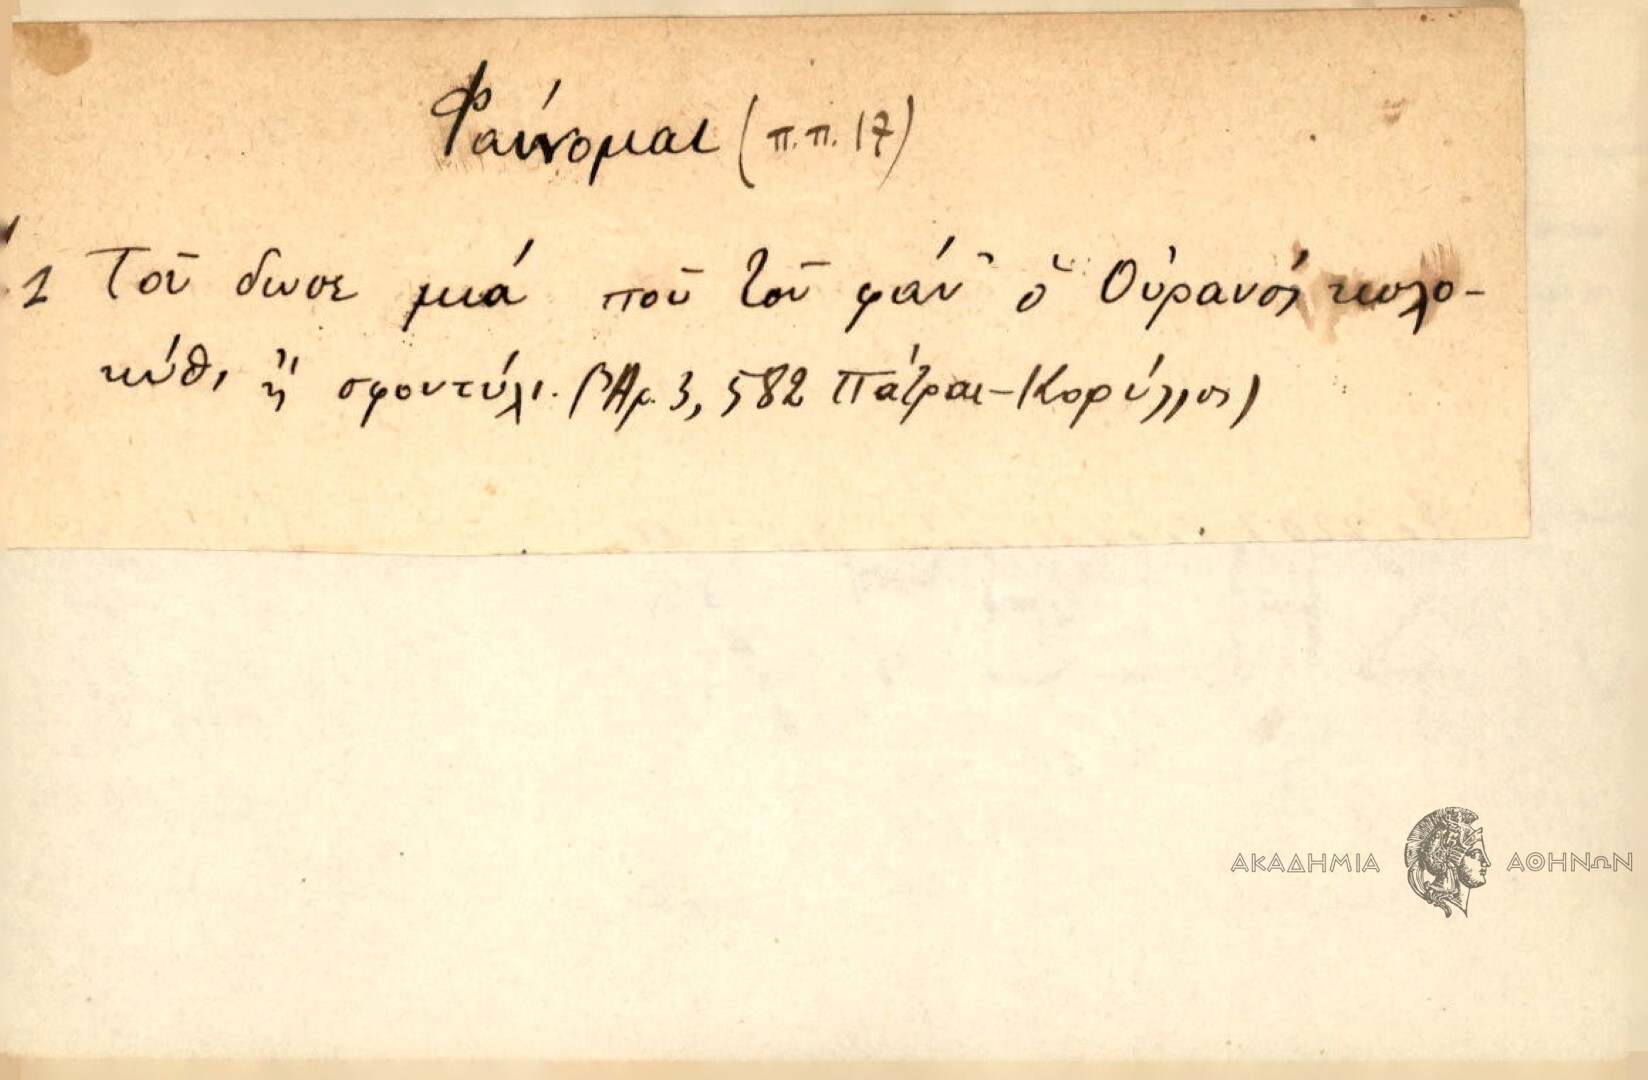 Φαίνομαι (π.π. 17)
1 Τοῦ δωσε μιά ποῦ τοῦ φάν' ὁ Οὐρανός κολο-
κύθι ἤ σφοντύλι. (Ἀρ. 3, 582 Πάτραι-Κορύλλος)
ΑΚΑΔΗΜΙΑ ΑΘΗΝΩΝ